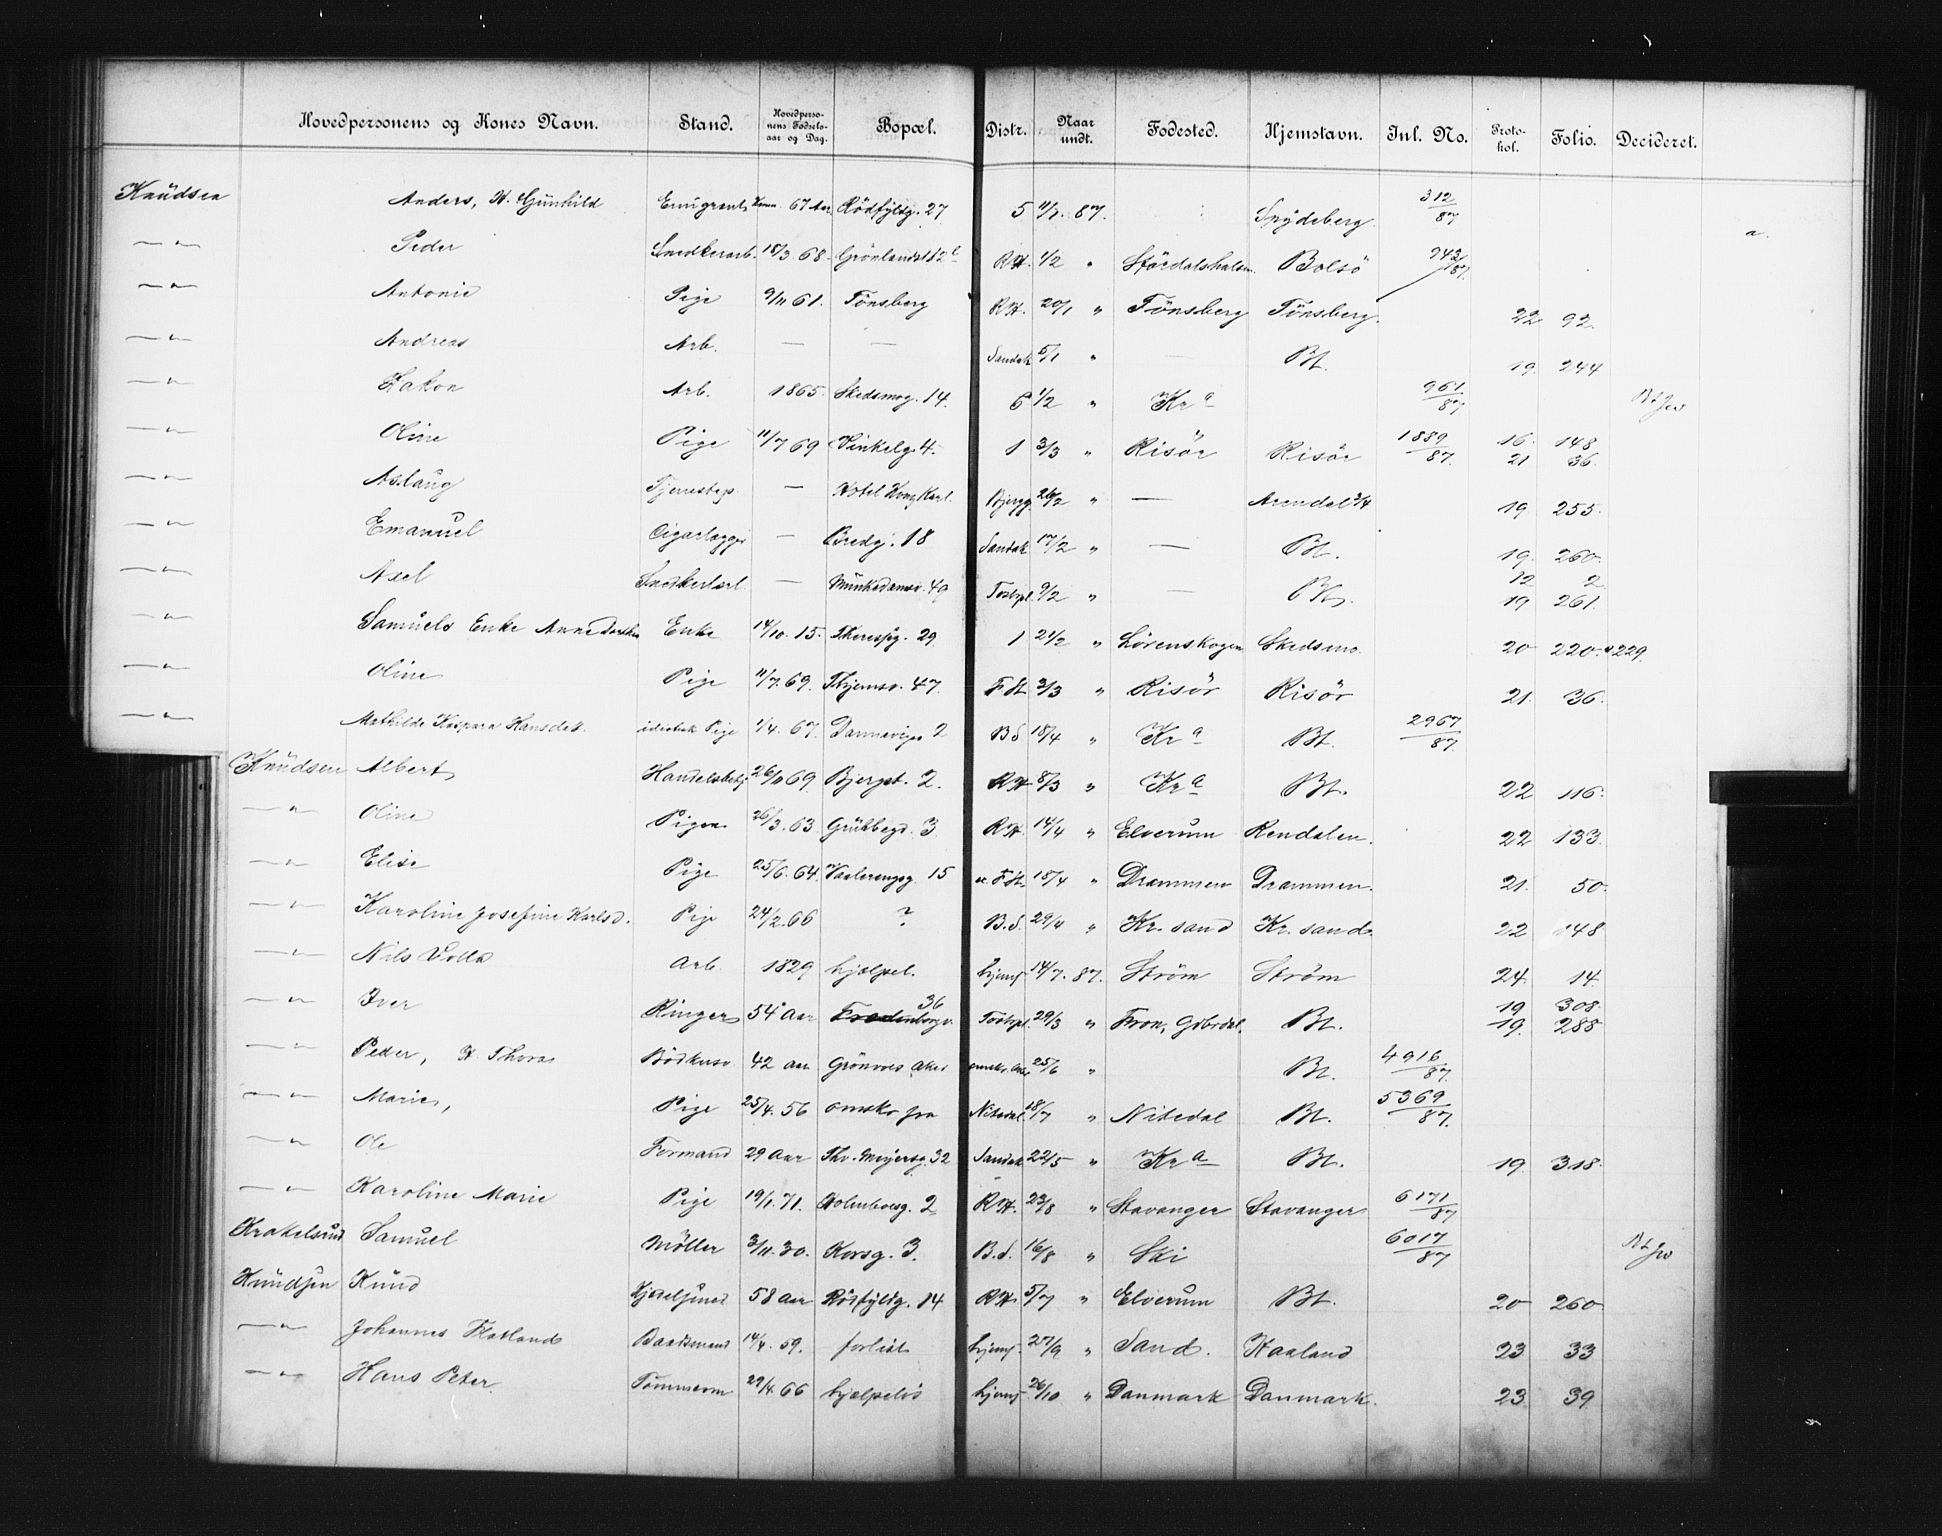 Hovedpersonens og Kones Navn. Stand. Hovedpersonens Fødselsaar og Dag. Bopæl. Distr. Naar undt. Fødested. Hjemstavn. Inl. No. Protokol. Folio. Decideret.
Knudsen Anders, H. Gunhild Emigrant 67 Aar Rödfyldg. 27 5 11/1 87. Spydeberg 312/87 a.
—„— Peder Snedkerarb. 18/3 68 Grönlandsl. 12 RH. 1/2 „ Störedalshalsen Bolsö 942/87.
—„— Antonie Pige 9/11 61. Tönsberg RH. 20/1 „ Tönsberg Tönsberg. 22 92.
—„— Andreas Arb. — — Sandak 5/1 „ — Bt. 19. 244
—„— Hakon Arb. 1865. Skedsmog. 14. 6 1/2 „ Kr a 961/87
—„— Oline Pige 11/7 69 Vinkelg. 4. 1 3/3 „ Risör Risör 1889/87. 16. 148 21 36.
—„— Aslaug Tjenestep. — Hotel Kong Karl. 26/2 „ — Arendal 3/4 19 255.
—„— Emanuel Cigarlægger — Bredg. 18 Sandak 17/2 „ — Bt. 19. 260.
—„— Axel Snedkerlærl. — Munkedamsv. 49 Tostpl. 9/2 „ — Bt. 12 2 19 261.
—„— Samuels Enke Anne Dorthea Enke 14/10. 15. Theresesg. 29. 1 21/2 „ Lörenskogen Skedsmo. 20 220. 229.
—„— Oline Pige 11/7. 69. 47. F.H. 3/3 „ Risör Risör 21. 36.
—„— Mathilde Kaspara Hansdat. idiotisk Pige 1/4. 67. Dannevigs 2 BS 18/4 „ Kr a Bt. 2967/87.
Knudsen Albert Handelsbetj. 26/11 69 Bjergst. 2. RH 8/3 „ Kr a Bt. 22 116.
—„— Oline Pigen 26/3. 63 Grübbegd. 3. RH. 14/4 „ Elverum Rendalen. 22 133.
—„— Elise Pige 25/6. 64. Vaalerengsg. 15 F.H. 18/4 „ Drammen Drammen. 21. 50.
—„— Karoline Josefine Karlsd. Pige 24/2. 66 ? B.S. 29/4 „ Kr. sand Kr. sand. 22 148
—„— Nils Volla Arb. 1829 hjælpel. Hjemf. 14/7. 87. Ström Ström 24. 14.
—„— Iver Ringer 54 Aar 36 Fredensborgv. Tostpl. 29/3 „ Fron, Gdbrdal. Bt. 19 308. 19. 288
—„— Peder, H. Thora Bödker 42 Aar Grönvold Aker 25/6 „ Bt. 4916/87.
—„— Marie, Pige 25/4. 56 omskr. fra Nitedal 18/7 „ Nitedal Bt. 5369/87.
—„— Ole Formand 29 Aar Thv. Meyersg. 32 Sandak 22/5 „ Kr a Bt. 19. 318.
—„— Karoline Marie Pige 19/1. 71. Holmboesg. 2 RH. 23/8 „ Stavanger Stavanger 6171/87
Krakelsrud Samuel Möller 3/11. 30. Korsg. 3. B.S. 16/8 „ Ski 6017/87
Knudsen Knud 58 Aar Rödfyldg. 14 RH. 5/7 „ Elverum Bt. 20 260
—„— Johannes Flatland Baadsmand 14/4. 59. forlist Hjemf. 27/9 „ Sand. Haaland 23 33
—„— Hans Peter. Tömmerm. 29/4 66 hjælpelös Hjemf. 26/10 „ Danmark Danmark. 23. 39